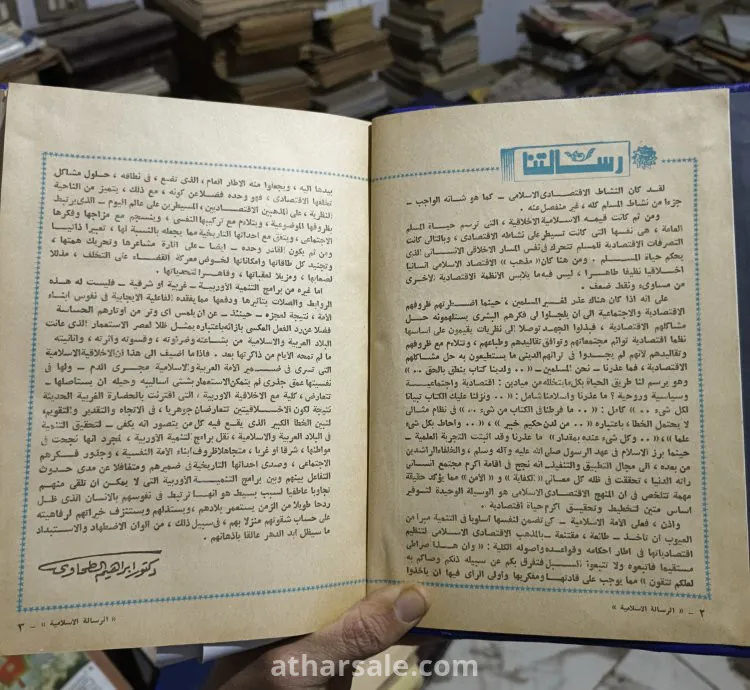 رسالتنا
لقد كان النشاط الاقتصادى الاسلامى ــ كما هو شأنه الواجب ــ
جزءا من نشاط المسلم كله ، غير منفصل عنه .
ومن ثم كانت قيمه الاسلامية الاخلاقية ، التى ترسم حياة المسلم
العامة ، هى نفسها التى كانت تسيطر على نشاطه الاقتصادى ، وبالتالى كانت
التصرفات الاقتصادية للمسلم تتحرك فى نفس المسار الاخلاقى الانسانى الذى
يحكم حياة المسلم . ومن هنا كان « مذهب » الاقتصاد الاسلامى انسانيا
اخلاقيا نظيفا طاهرا ، ليس فيه ما يلابس الانظمة الاقتصادية الاخرى
من مساوىء ونقط ضعف .
على انه اذا كان هناك عذر لغير المسلمين ، حينما اضطرتهم ظروفهم
الاقتصادية والاجتماعية الى ان يلجاوا الى فكرهم البشرى يستلهمونه حل
مشاكلهم الاقتصادية ، فبذلوا الجهد توصلا الى نظريات يقيمون على اساسها
نظما اقتصادية توائم مجتمعاتهم وتوافق تقاليدهم وطباعهم ، وتتلاءم مع ظروفهم
وتقاليدهم لأنهم لم يجدوا فى تراثهم الدينى ما يستطيعون به حل مشاكلهم
الاقتصادية ، فما عذرنا ــ نحن المسلمين ــ « .. ولدينا كتاب ينطق بالحق .. »
وهو يرسم لنا طريق الحياة بكل ما يتخلله من ميادين : اقتصادية واجتماعية
وسياسية وروحية ؟ ما عذرنا واسلامنا شامل : « .. ونزلنا عليك الكتاب تبيانا
لكل شىء .. » كامل : « .. ما فرطنا فى الكتاب من شىء .. » فى نظام مثالى
لا يحتمل الخطا ، باعتباره « .. من لدن حكيم خبير » ، « .. واحاط بكل شىء
علما » ، « .. وكل شىء عنده بمقدار » ما عذرنا وقد اثبتت التجربة العلمية ــ
حينما برز الاسلام فى عهد الرسول صلى الله عليه وآله وسلم ، والخلفاء الراشدين
من بعده ، الى مجال التطبيق والتنفيذ انه نجح فى اقامة اكرم مجتمع انسانى
رأته الدنيا ، تحققت فى ظله كل معانى « الكفاية » و « الأمن » مما يؤكد حقيقة
مهمة تتلخص فى ان المنهج الاقتصادى الاسلامى هو الوسيلة الوحيدة لتوفير
اساس متين لتخطيط وتحقيق اكرم حياة اقتصادية .
واذن ، فعلى الأمة الاسلامية ــ كى تضمن لنفسها اسلوبا فى التنمية مبرا من
العيوب ان تأخذ ــ طائعة ، مقتنعة ــ بالمذهب الاقتصادى الاسلامى لتنظيم
اقتصادياتها فى اطار احكامه وقواعده واصوله الكلية : « وان هذا صراطى
مستقيما فاتبعوه ولا تتبعوا السبل فتفرق بكم عن سبيله ذلكم وصاكم به
لعلكم تتقون » مما يوجب على قادتها ومفكريها واولى الرأى فيها ان يأخذوا
٢ ــ « الرسالة الاسلامية »
بيدها اليه ، ويجعلوا منه الاطار العام ، الذى تضع ، فى نطاقه ، حلول مشاكل
تخلفها الاقتصادى ، فهو وحده فضلا عن كونه ، مع ذلك ، يتميز من الناحية
النظرية ، على المذهبين الاقتصاديين ، المسيطرين على عالم اليوم ــ الذى يرتبط
بظروفها الموضوعية ، ويتلاءم مع تركيبها النفسى ، وينسجم مع مزاجها وفكرها
الاجتماعى ، ويتفق مع احداثها التاريخية مما يجعله بالنسبة لها ، تعبيرا ذاتيا
ومن ثم يكون القادر وحده ــ ايضا ــ على اثارة مشاعرها وتحريك همتها ،
وتجنيد كل طاقاتها وامكاناتها لخوض معركة القضاء على التخلف ، مذللا
لصعابها ، ومزيلا لعقباتها ، وقاهرا لتحدياتها .
اما غيره من برامج التنمية الأوربية ــ غربية او شرقية ــ فليست له هذه
الروابط والصلات بتاثيرها ودفعها مما يفقده الفاعلية الايجابية فى نفوس ابناء
الأمة ، نتيجة لعجزه ــ حينئذ ــ عن ان يلمس اى وتر من اوتارهم الحساسة
فضلا عن رد الفعل العكسى بازائه باعتباره يمثل ظلا لعصر الاستعمار الذى عانت
البلاد العربية والاسلامية من بشاعته وضراوته ، وقسوته واثرته ، وانانيته
ما لم تمحه الأيام من ذاكرتها بعد . فاذا ما اضيف الى هذا ان الاخلاقية الاسلامية
التى تسرى فى ضمير الأمة العربية والاسلامية مجرى الدم ــ ولها فى
نفسيتها عمق جذرى لم يتمكن الاستعمار بشتى اساليبه وحيله ان يستاصلها ــ
تتعارض ، كلية مع الاخلاقية الأوربية ، التى اقترنت بالحضارة الغربية الحديثة
نتيجة لكون الاخلاقيتين تتعارضان جوهريا ، فى الاتجاه والتقدير والتقويم ،
لتبين الخطا الكبير الذى يقع فيه كل من يتصور انه يكفى ــ لتحقيق التنمية
فى البلاد العربية والاسلامية ، نقل برامج لتنمية الأوربية ، لمجرد انها نجحت فى
مواطنها ، شرقا او غربا ، متجاهلا ظروف ابناء الأمة النفسية ، وجذور فكرهم
الاجتماعى ، وصدى احداثها التاريخية فى ضميرهم ومتغافلا عن مدى حدوث
التفاعل بينهم وبين برامج التنمية الأوربية التى لا يمكن ان تلقى منهم
تجاوبا عاطفيا لسبب بسيط هو انها ترتبط فى نفوسهم بالانسان الذى ظل
ردحا طويلا من الزمن يستعمر بلادهم ، ويستذلهم ويستنزف خيراتهم لرفاهيته
على حساب شقائهم منزلا بهم ، فى سبيل ذلك ، من الوان الاضطهاد والاستبداد
ما سيظل ابد الدهر عالقا باذهانهم .
دكتور ابراهيم الطحاوى
« الرسالة الاسلامية » ــ ٣
atharsale.com